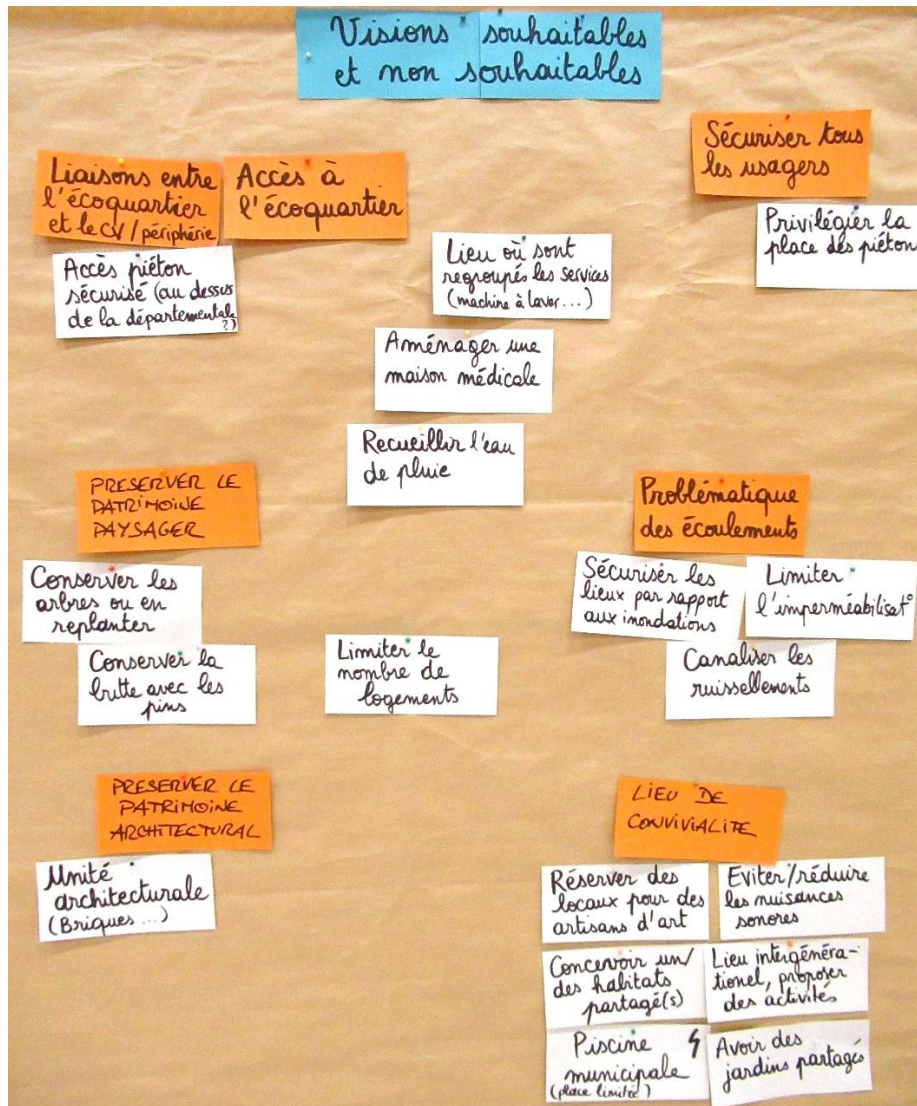 Visions souhaitables
et non souhaitables
Liaisons entre
l'écoquartier
et le CV / périphérie
Accès à
l'écoquartier
Sécuriser tous
les usagers
Accès piéton
sécurisé (au dessus
de la départementale
?)
Lieu où sont
regroupés les services
(machine à laver ...)
Privilégier la
place des piétons
Aménager une
maison médicale
Recueillir l'eau
de pluie
PRESERVER LE
PATRIMOINE
PAYSAGER
Conserver les
arbres ou en
replanter
Conserver la
butte avec les
pins
Limiter le
nombre de
logements
Problématique
des écoulements
Sécuriser les
lieux par rapport
aux inondations
Limiter
l'imperméabilisat°
Canaliser les
ruissellements
PRESERVER LE
PATRIMOINE
ARCHITECTURAL
Unité
architecturale
(Briques ...)
LIEU DE
CONVIVIALITE
Réserver des
locaux pour des
artisans d'art
Eviter/réduire
les nuisances
sonores
Concevoir un/
des habitats
partagé(s)
Lieu intergénéra-
tionel, proposer
des activités
Piscine
municipale
(place limitée)
Avoir des
jardins partagés